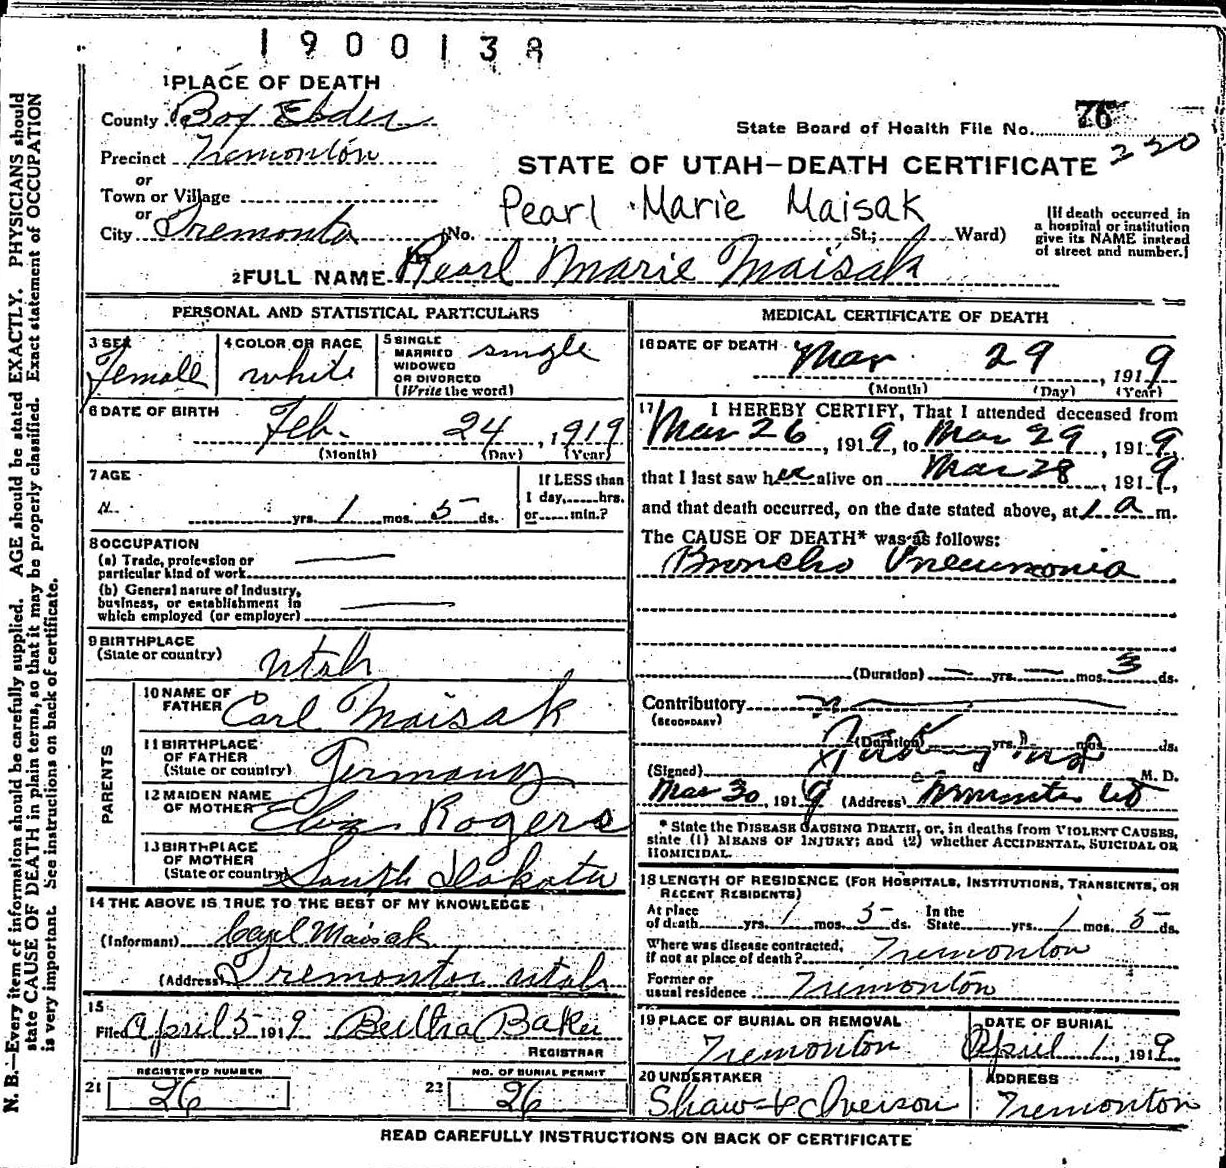 1900138
1 PLACE OF DEATH
County Box Elder
State Board of Health File No. 76
230
Precinct Tremonton
or
STATE OF UTAH—DEATH CERTIFICATE
Town or Village
or
Pearl Marie Maisak
City Tremonton (No. St.; Ward)
[If death occurred in
a hospital or institution
give its NAME instead
of street and number.]
2 FULL NAME Pearl Marie Maisak
PERSONAL AND STATISTICAL PARTICULARS
3 SEX Female
4 COLOR OR RACE white
5 SINGLE
MARRIED
WIDOWED
OR DIVORCED
(Write the word) single
6 DATE OF BIRTH
Feb. 24, 1919
(Month) (Day) (Year)
7 AGE
yrs. 1 mos. 5 ds.
If LESS than
1 day, hrs.
or min.?
8 OCCUPATION
(a) Trade, profession or
particular kind of work
(b) General nature of Industry,
business, or establishment in
which employed (or employer)
9 BIRTHPLACE
(State or country) Utah
PARENTS
10 NAME OF
FATHER Carl Maisak
11 BIRTHPLACE
OF FATHER
(State or country) Germany
12 MAIDEN NAME
OF MOTHER Rogers
13 BIRTHPLACE
OF MOTHER
(State or country) South Dakota
14 THE ABOVE IS TRUE TO THE BEST OF MY KNOWLEDGE
(Informant) Carl Maisak
(Address) Tremonton Utah
15
Filed April 5 1919 Bertha Baker
REGISTRAR
21 REGISTERED NUMBER 26
22 NO. OF BURIAL PERMIT 26
MEDICAL CERTIFICATE OF DEATH
16 DATE OF DEATH Mar 29, 1919
(Month) (Day) (Year)
17 I HEREBY CERTIFY, That I attended deceased from
Mar 26, 1919, to Mar 29, 1919
that I last saw her alive on Mar 28, 1919,
and that death occurred, on the date stated above, at 1 a m.
The CAUSE OF DEATH* was as follows:
Broncho Pneumonia
(Duration) yrs. mos. 3 ds.
Contributory
(SECONDARY)
(Duration) yrs. mos. ds.
(Signed) M. D.
Mar 30, 1919 (Address) Tremonton Ut
* State the DISEASE CAUSING DEATH, or, in deaths from VIOLENT CAUSES,
state (1) MEANS OF INJURY; and (2) whether ACCIDENTAL, SUICIDAL OR
HOMICIDAL.
18 LENGTH OF RESIDENCE (FOR HOSPITALS, INSTITUTIONS, TRANSIENTS, OR
RECENT RESIDENTS)
At place
of death yrs. 1 mos. 5 ds. In the
State yrs. 1 mos. 5 ds.
Where was disease contracted,
if not at place of death? Tremonton
Former or
usual residence Tremonton
19 PLACE OF BURIAL OR REMOVAL
Tremonton
DATE OF BURIAL
April 1, 1919
20 UNDERTAKER
Shaw & Iverson
ADDRESS
Tremonton
READ CAREFULLY INSTRUCTIONS ON BACK OF CERTIFICATE
N. B.—Every item of information should be carefully supplied. AGE should be stated EXACTLY. PHYSICIANS should
state CAUSE OF DEATH in plain terms, so that it may be properly classified. Exact statement of OCCUPATION
is very important. See instructions on back of certificate.